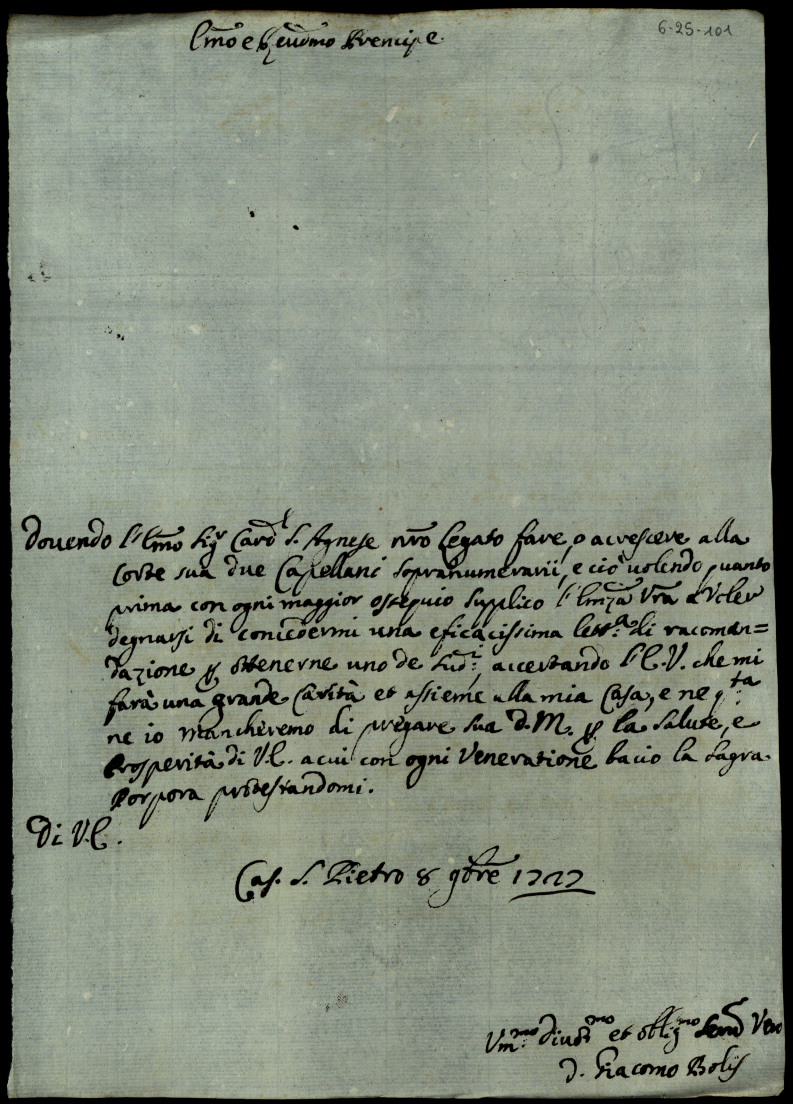 6-25-101
Em̃o e Reudm̃o Prencipe.
Douendo l'Em̃o Sig.r Card.l S. Agnese nr̃o Legato fare, o acrescere alla
Corte sua due Capellani Sopranumerarii, e ciò uolendo quanto
prima con ogni maggior ossequio supplico l'Em̃za Vr̃a à Voler
degnarsi di concedermi una eficacissima lett.ra di racoman=
dazione p ottenerne uno de Sud.i, accertando l'E.V. che mi
farà una grande Carità et assieme alla mia Casa, e ne q.ta
ne io mancheremo di pregare sua D.M. p la Salute, e
Prosperità di V.E. a cui con ogni Veneratione bacio la Sagra
Porpora protestandomi.
Di V.E.
Cas. S. Pietro 8 9bre 1727
Vm.mo Diuot.mo et obblig.mo Seru.
D. Giacomo Bolis